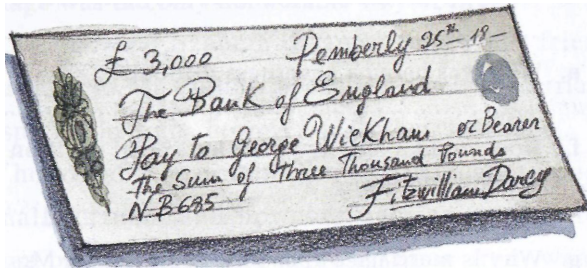 £ 3,000 Pemberly 25th 18-
The Bank of England
Pay to George Wickham or Bearer
The Sum of Three Thousand Pounds
NB685 Fitzwilliam Darcy